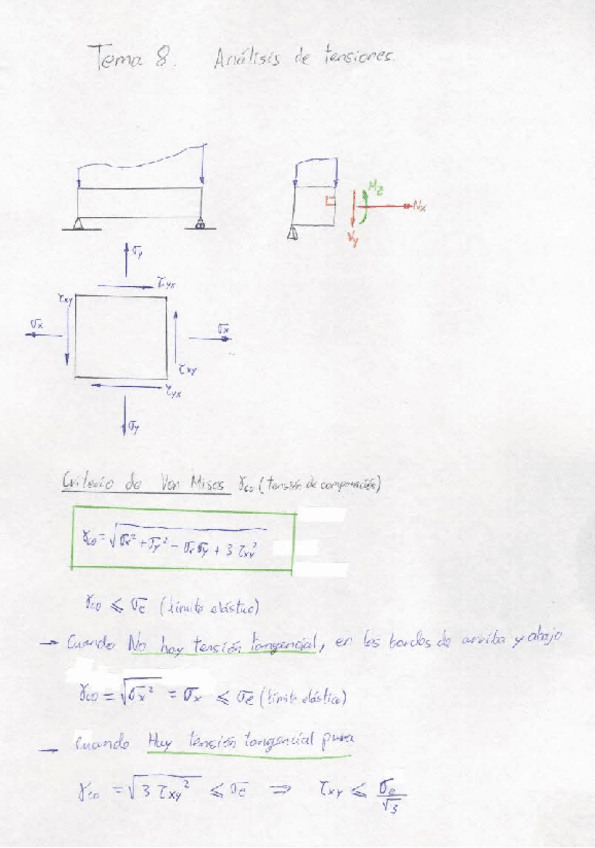 Tema 8. Análisis de tensiones.
Mz
Nx
Vy
σy
τyx
τxy
σx
σx
τxy
τyx
σy
Criterio de Von Mises γco (tensión de comparación)
γco = √σx² + σy² - σxσy + 3 τxy²
γco ≤ σe (límite elástico)
→ Cuando No hay tensión tangencial, en los bordes de arriba y abajo
γco = √σx² = σx ≤ σe (límite elástico)
→ Cuando Hay tensión tangencial pura
γco = √3 τxy² ≤ σe ⇒ τxy ≤ σe/√3